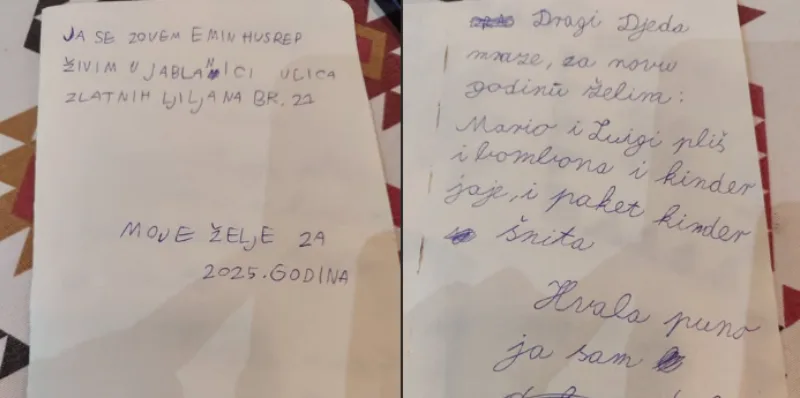 JA SE ZOVEM EMIN HUSREP
ŽIVIM U JABLANICI ULICA
ZLATNIH LJILJANA BR. 21
MOJE ŽELJE ZA
2025. GODINA
Dragi Djeda
mraze, za novu
godinu želim:
Mario i Luigi pliš
i bombona i kinder
jaje, i paket kinder
šnita
Hvala puno
ja sam